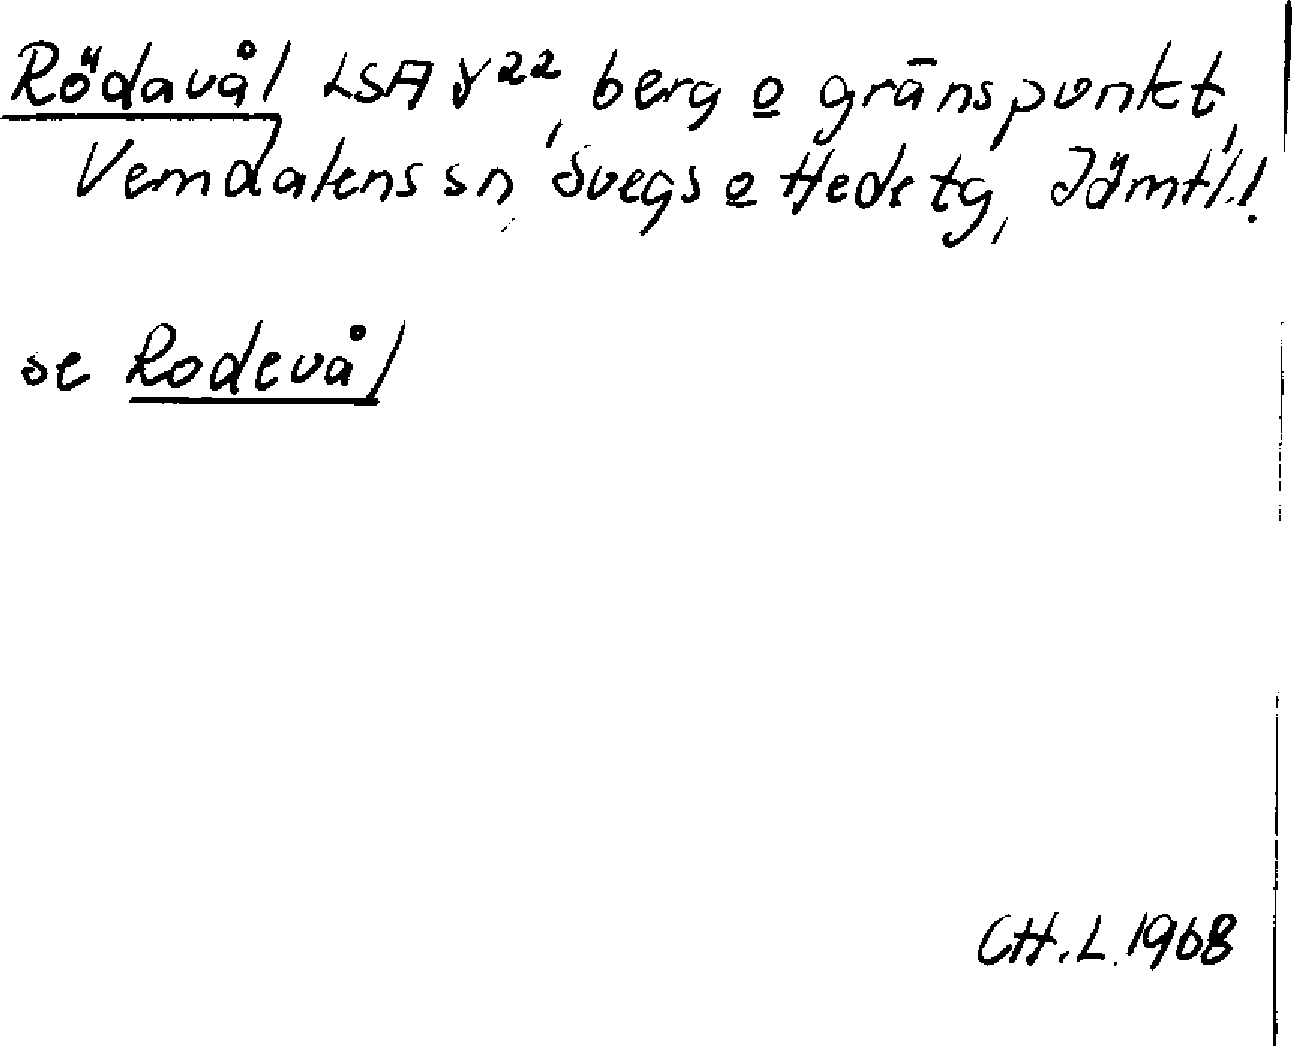 Rödavål LSA Y22, berg o gränspunkt,
Vemdalens sn, Svegs o Hede tg, Jämtl.!
se Rodevål
CH.L. 1968